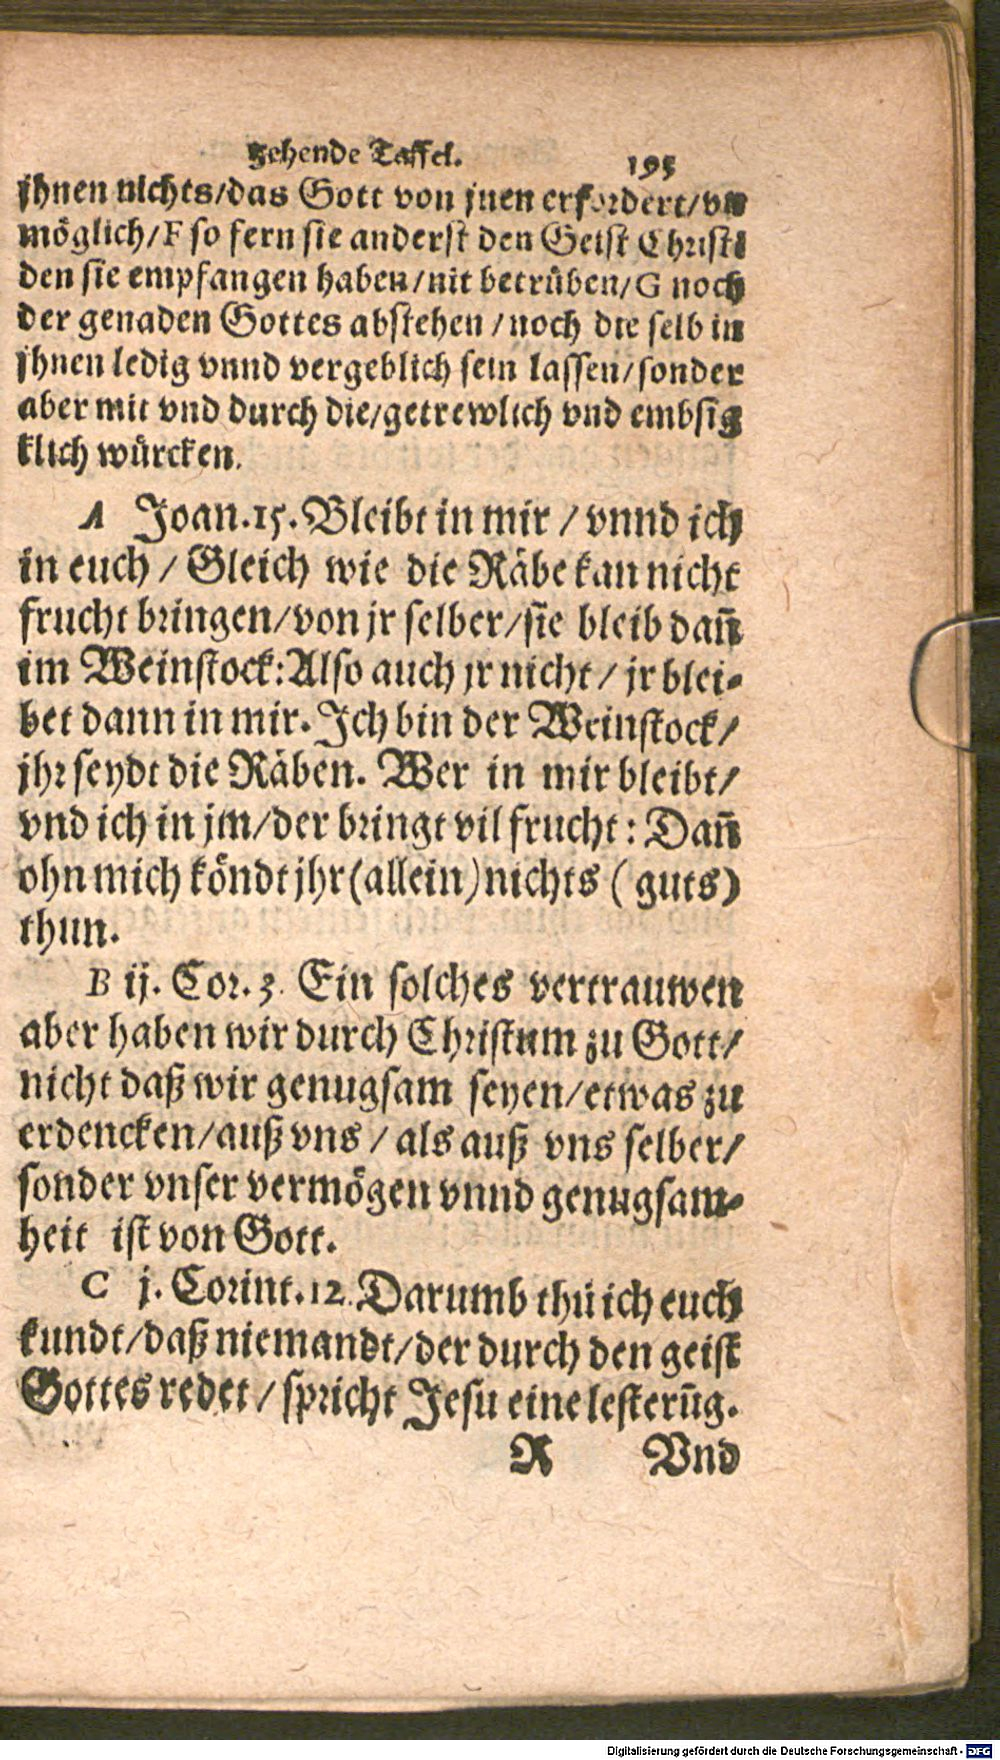 gehende Taffel. 195
jhnen nichts/das Gott von jnen erfordert/vn
möglich/F so fern sie anderst den Geist Christi
den sie empfangen haben/nit betrüben/G noch
der genaden Gottes abstehen/noch die selb in
jhnen ledig vnnd vergeblich sein lassen/sonder
aber mit vnd durch die/getrewlich vnd embsig
klich würcken.
A Joan.15. Bleibt in mir / vnnd ich
in euch / Gleich wie die Räbe kan nicht
frucht bringen/von jr selber/sie bleib dañ
im Weinstock: Also auch jr nicht / jr blei-
bet dann in mir. Ich bin der Weinstock/
jhr seydt die Räben. Wer in mir bleibt/
vnd ich in jm/der bringt vil frucht: Dañ
ohn mich köndt jhr (allein) nichts (guts)
thun.
B ij. Cor. 3. Ein solches vertrauwen
aber haben wir durch Christum zu Gott/
nicht daß wir genugsam seyen/etwas zu
erdencken/auß vns / als auß vns selber/
sonder vnser vermögen vnnd genugsam-
heit ist von Gott.
C j. Corint. 12. Darumb thü ich euch
kundt/daß niemandt/der durch den geist
Gottes redet / spricht Jesu eine lesterūg.
R Vnd
Digitalisierung gefördert durch die Deutsche Forschungsgemeinschaft - DFG